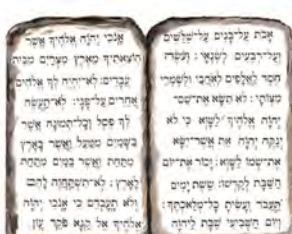 אנכי יהוה אלהיך אשר
הוצאתיך מארץ מצרים מבית
עבדים: לא־יהיה לך אלהים
אחרים על־פני: לא־תעשה
לך פסל וכל־תמונה אשר
בשמים ממעל ואשר בארץ
מתחת ואשר במים מתחת
לארץ: לא־תשתחוה להם
ולא תעבדם כי אנכי יהוה
אלהיך אל קנא פקד עון
אבת על־בנים על־שלשים
ועל־רבעים לשנאי: ועשה
חסד לאלפים לאהבי ולשמרי
מצותי: לא תשא את־שם־
יהוה אלהיך לשוא כי לא
ינקה יהוה את אשר־ישא
את־שמו לשוא: זכור את־יום
השבת לקדשו: ששת ימים
תעבד ועשית כל־מלאכתך:
ויום השביעי שבת ליהוה